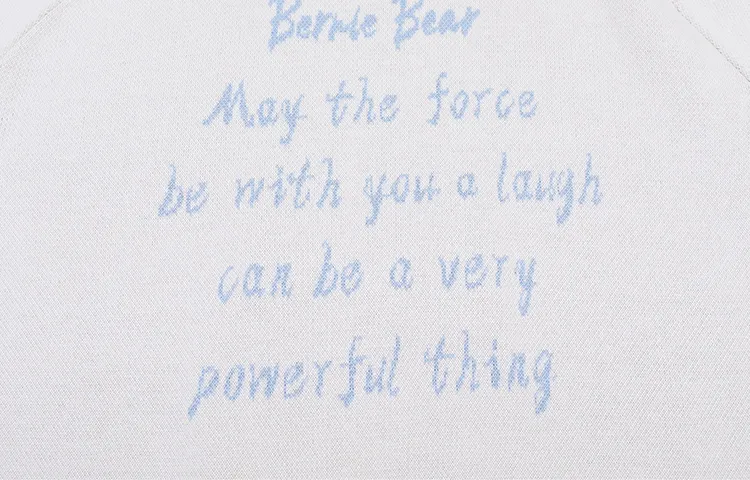 Bernie Bear
May the force
be with you a laugh
can be a very
powerful thing